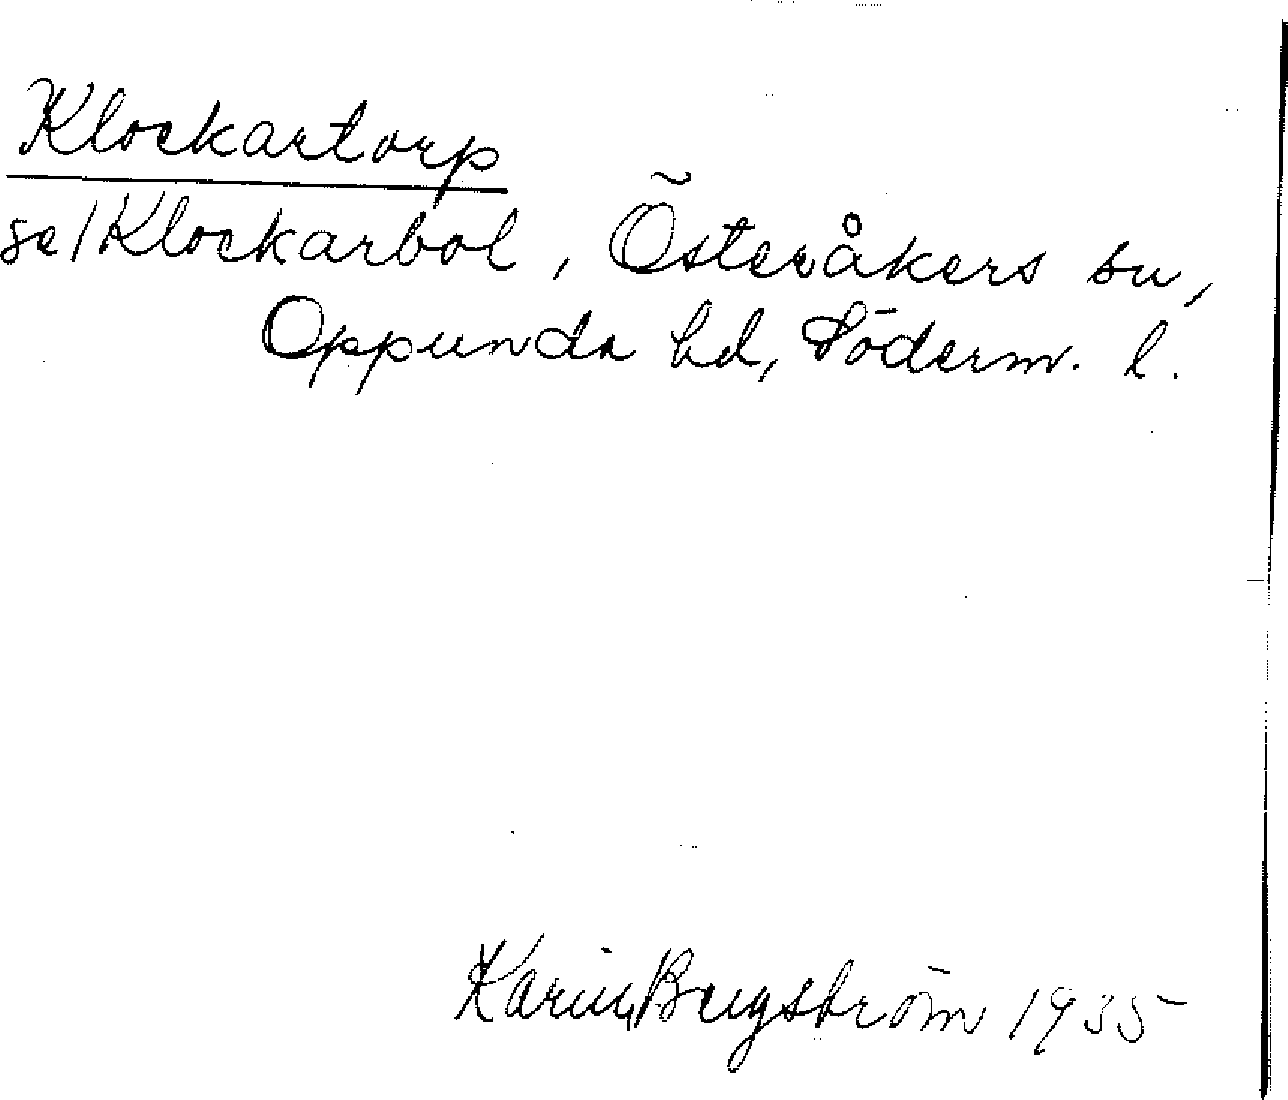 Klockartorp
se/Klockarbol, Österåkers sn,
Oppunda hd, Söderm. l.
Karin Bergström 1935